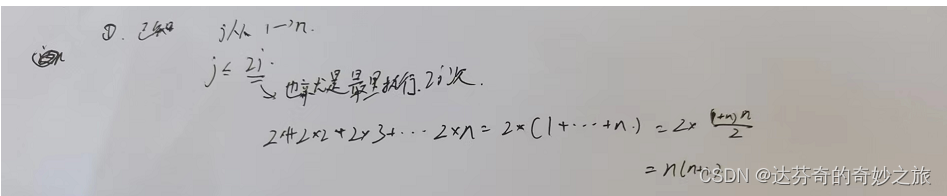 ①. 已知 i从 1→n.
j ≤ 2i.
也就是最里执行 2i次.
2+2×2+2×3+⋯ 2×n = 2×(1+⋯+n) = 2× (1+n)n/2
= n(n+
CSDN @达芬奇的奇妙之旅